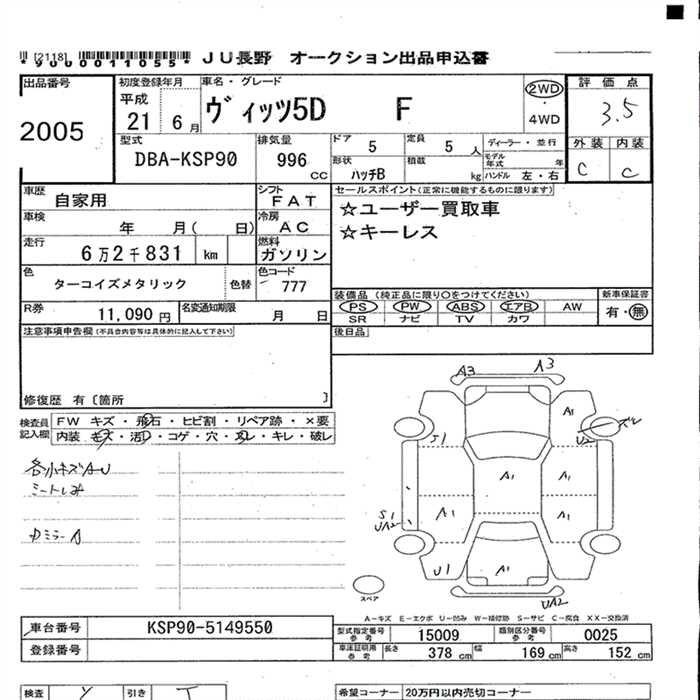 [2118]
*9000011055* JU長野 オークション出品申込書
出品番号 初度登録年月 車名・グレード 評価点
2005 平成 21 6月 ヴィッツ5D F 2WD ・ 4WD 3.5
型式 排気量 ドア 5 定員 5人 ディーラー・並行 外装 内装
DBA-KSP90 996 cc 形状 ハッチB 積載 kg モデル年式 年 ハンドル 左・右 C C
車歴 自家用 シフト FAT セールスポイント(正常に機能するものに限ります)
車検 年 月( 日) 冷房 AC ☆ユーザー買取車
走行 6万2千831 km 燃料 ガソリン ☆キーレス
色 ターコイズメタリック 色替 色コード 777
装備品 (純正品に限り○をつけてください) 新車保証書
R券 11,090円 名変通知期限 月 日 PS PW ABS エアB AW 有・無
SR ナビ TV カワ
注意事項申告欄(不具合内容等は具体的に記入して下さい) 後日品
修復歴 有〔箇所 〕
検査員記入欄 FW キズ・飛石・ヒビ割・リペア跡・×要
内装 キズ・汚れ・コゲ・穴・スレ・キレ・破レ
各小キズAU
シートしみ
A3 A3
A1 J1 U2 ズレ
A1 A1
S1 UA2 A1 A1
U1 A1 UA2
スペア
A-キズ E-エクボ U-凹み W-補修跡 S-サビ C-腐食 XX-交換済
車台番号 KSP90-5149550 型式指定番号 参考 15009 類別区分番号 参考 0025
登録番号 車庫証明用 参考 長さ 378 cm 幅 169 cm 高さ 152 cm
検査 引き 希望コーナー 20万円以内売切コーナー